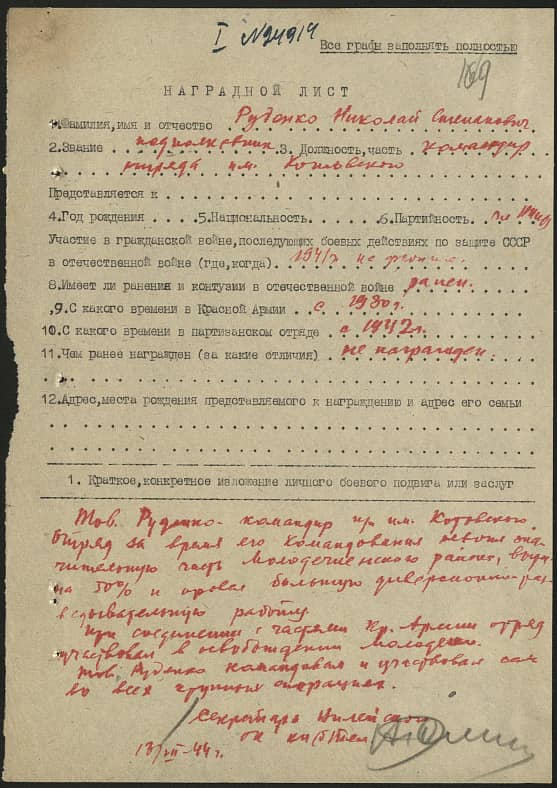 I №24914
Все графы заполнять полностью
169
НАГРАДНОЙ ЛИСТ
1.Фамилия,имя и отчество Руденко Николай Степанович
2.Звание подполковник 3. Должность,часть командир
отряда им. Котовского
Представляется к
4.Год рождения 5.Национальность 6.Партийность
Участие в гражданской войне,последующих боевых действиях по защите СССР
в отечественной войне (где,когда) 1941г. на
8.Имеет ли ранения и контузии в отечественной войне ранен.
9.С какого времени в Красной Армии с 1930г.
10.С какого времени в партизанском отряде с 1942г.
11.Чем ранее награжден (за какие отличия) не награжден.
12.Адрес,места рождения представляемого к награждению и адрес его семьи
1. Краткое,конкретное изложение личного боевого подвига или заслуг
Тов. Руденко - командир им. Котовского.
Отряд за время его командования зна-
чительную часть Молодеченского района,
на 50% и провел большую диверсионно-раз-
ведывательную работу.
При соединении с частями Кр. Армии отряд
участвовал в освобождении Молодечно.
Тов. Руденко командовал и участвовал сам
во всех крупных операциях.
Секретарь Вилейского
ОК КП(б)Бел